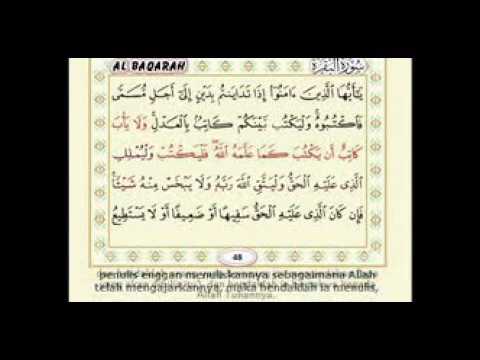 AL BAQARAH
سُورَةُ الْبَقَرَة
يَٰٓأَيُّهَا ٱلَّذِينَ ءَامَنُوٓا۟ إِذَا تَدَايَنتُم بِدَيْنٍ إِلَىٰٓ أَجَلٍ مُّسَمًّى
فَٱكْتُبُوهُ ۚ وَلْيَكْتُب بَّيْنَكُمْ كَاتِبٌۢ بِٱلْعَدْلِ ۚ وَلَا يَأْبَ
كَاتِبٌ أَن يَكْتُبَ كَمَا عَلَّمَهُ ٱللَّهُ ۚ فَلْيَكْتُبْ وَلْيُمْلِلِ
ٱلَّذِى عَلَيْهِ ٱلْحَقُّ وَلْيَتَّقِ ٱللَّهَ رَبَّهُۥ وَلَا يَبْخَسْ مِنْهُ شَيْـًٔا ۚ
فَإِن كَانَ ٱلَّذِى عَلَيْهِ ٱلْحَقُّ سَفِيهًا أَوْ ضَعِيفًا أَوْ لَا يَسْتَطِيعُ
48
penulis enggan menuliskannya sebagaimana Allah
telah mengajarkannya, maka hendaklah ia menulis,
Allah Tuhannya.